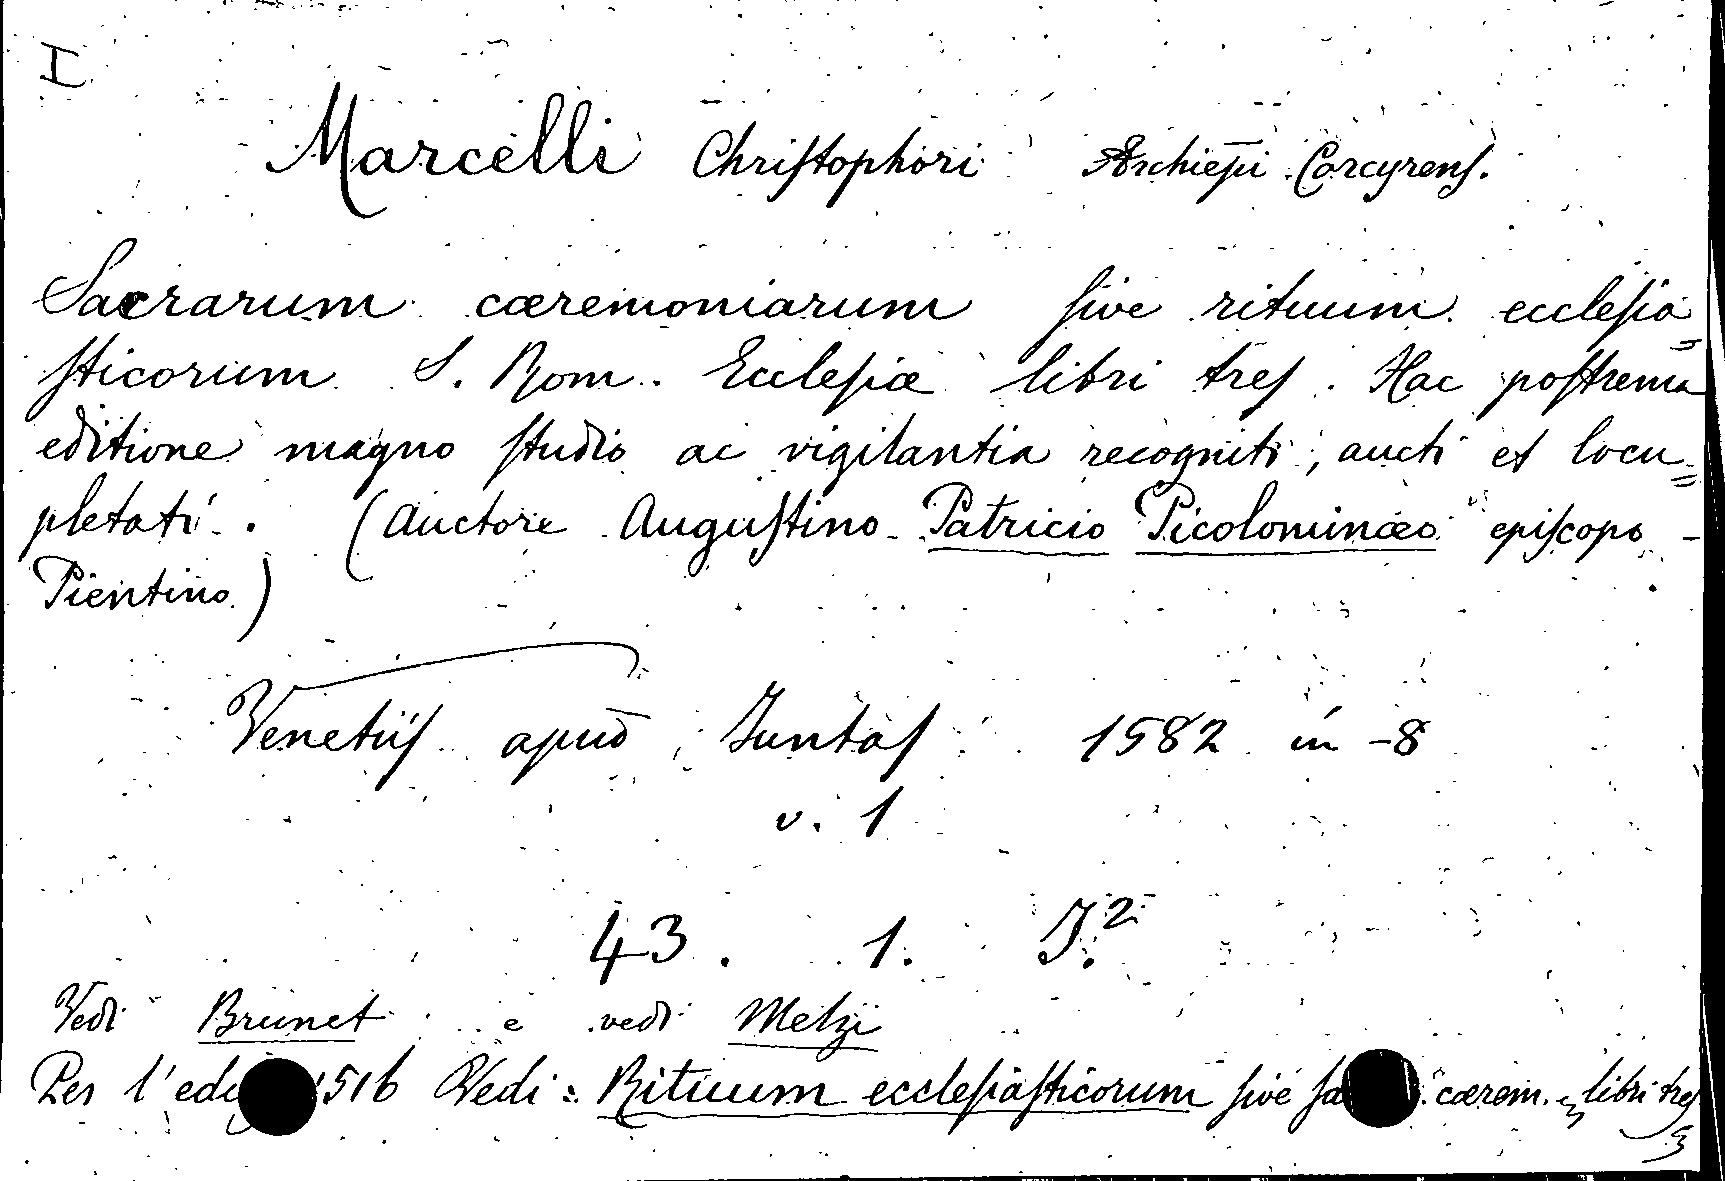 I
Marcelli Chriſtophori Archiep̄i Corcyrenſ.
Sacrarum cæremoniarum ſive rituum eccleſia=
ſticorum S. Rom. Eccleſiæ libri treſ. Hac poſtrema
editione magno ſtudio ac vigilantia recogniti, aucti et locu=
pletati. (Auctore Auguſtino Patricio Picolominæo epiſcopo -
Pientino)
Venetiiſ apud Juntaſ 1582 in -8
v. 1
43. 1. J.²
Vedi Brunet e vedi Melzi
Per l'ed 1516 Vedi: Rituum eccleſiaſticorum ſive ſa cærem. libri treſ